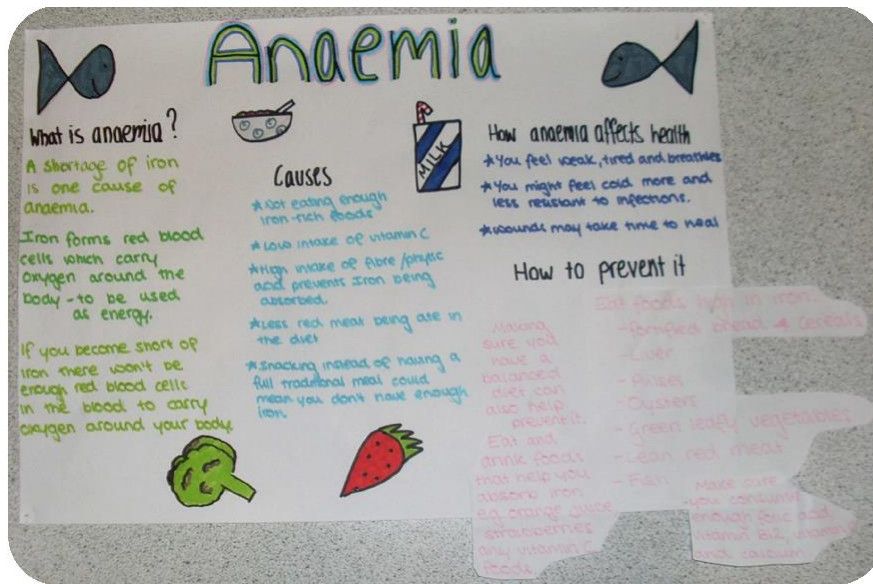 Anaemia
What is anaemia?
A shortage of iron
is one cause of
anaemia.
Iron forms red blood
cells which carry
oxygen around the
body - to be used
as energy.
If you become short of
iron there won't be
enough red blood cells
in the blood to carry
oxygen around your body.
MILK
Causes
*Not eating enough
iron-rich foods
*Low intake of vitamin C
*High intake of fibre/phytic
acid prevents Iron being
absorbed.
*Less red meat being ate in
the diet
*Snacking instead of having a
full traditional meal could
mean you don't have enough
iron.
How anaemia affects health
*You feel weak, tired and breathless
*You might feel cold more and
less resistant to infections.
*wounds may take time to heal
How to prevent it
Making
sure you
have a
balanced
diet can
also help
prevent it.
Eat and
drink foods
that help you
absorb iron
e.g. orange juice
strawberries
any vitamin C
foods
Eat foods high in iron.
-fortified bread & cereals
-Liver
-Pulses
-Oysters
-Green leafy vegetables
-Lean red meat
-Fish
Make sure
you consume
enough folic acid
vitamin b12, vitamin
and calcium.